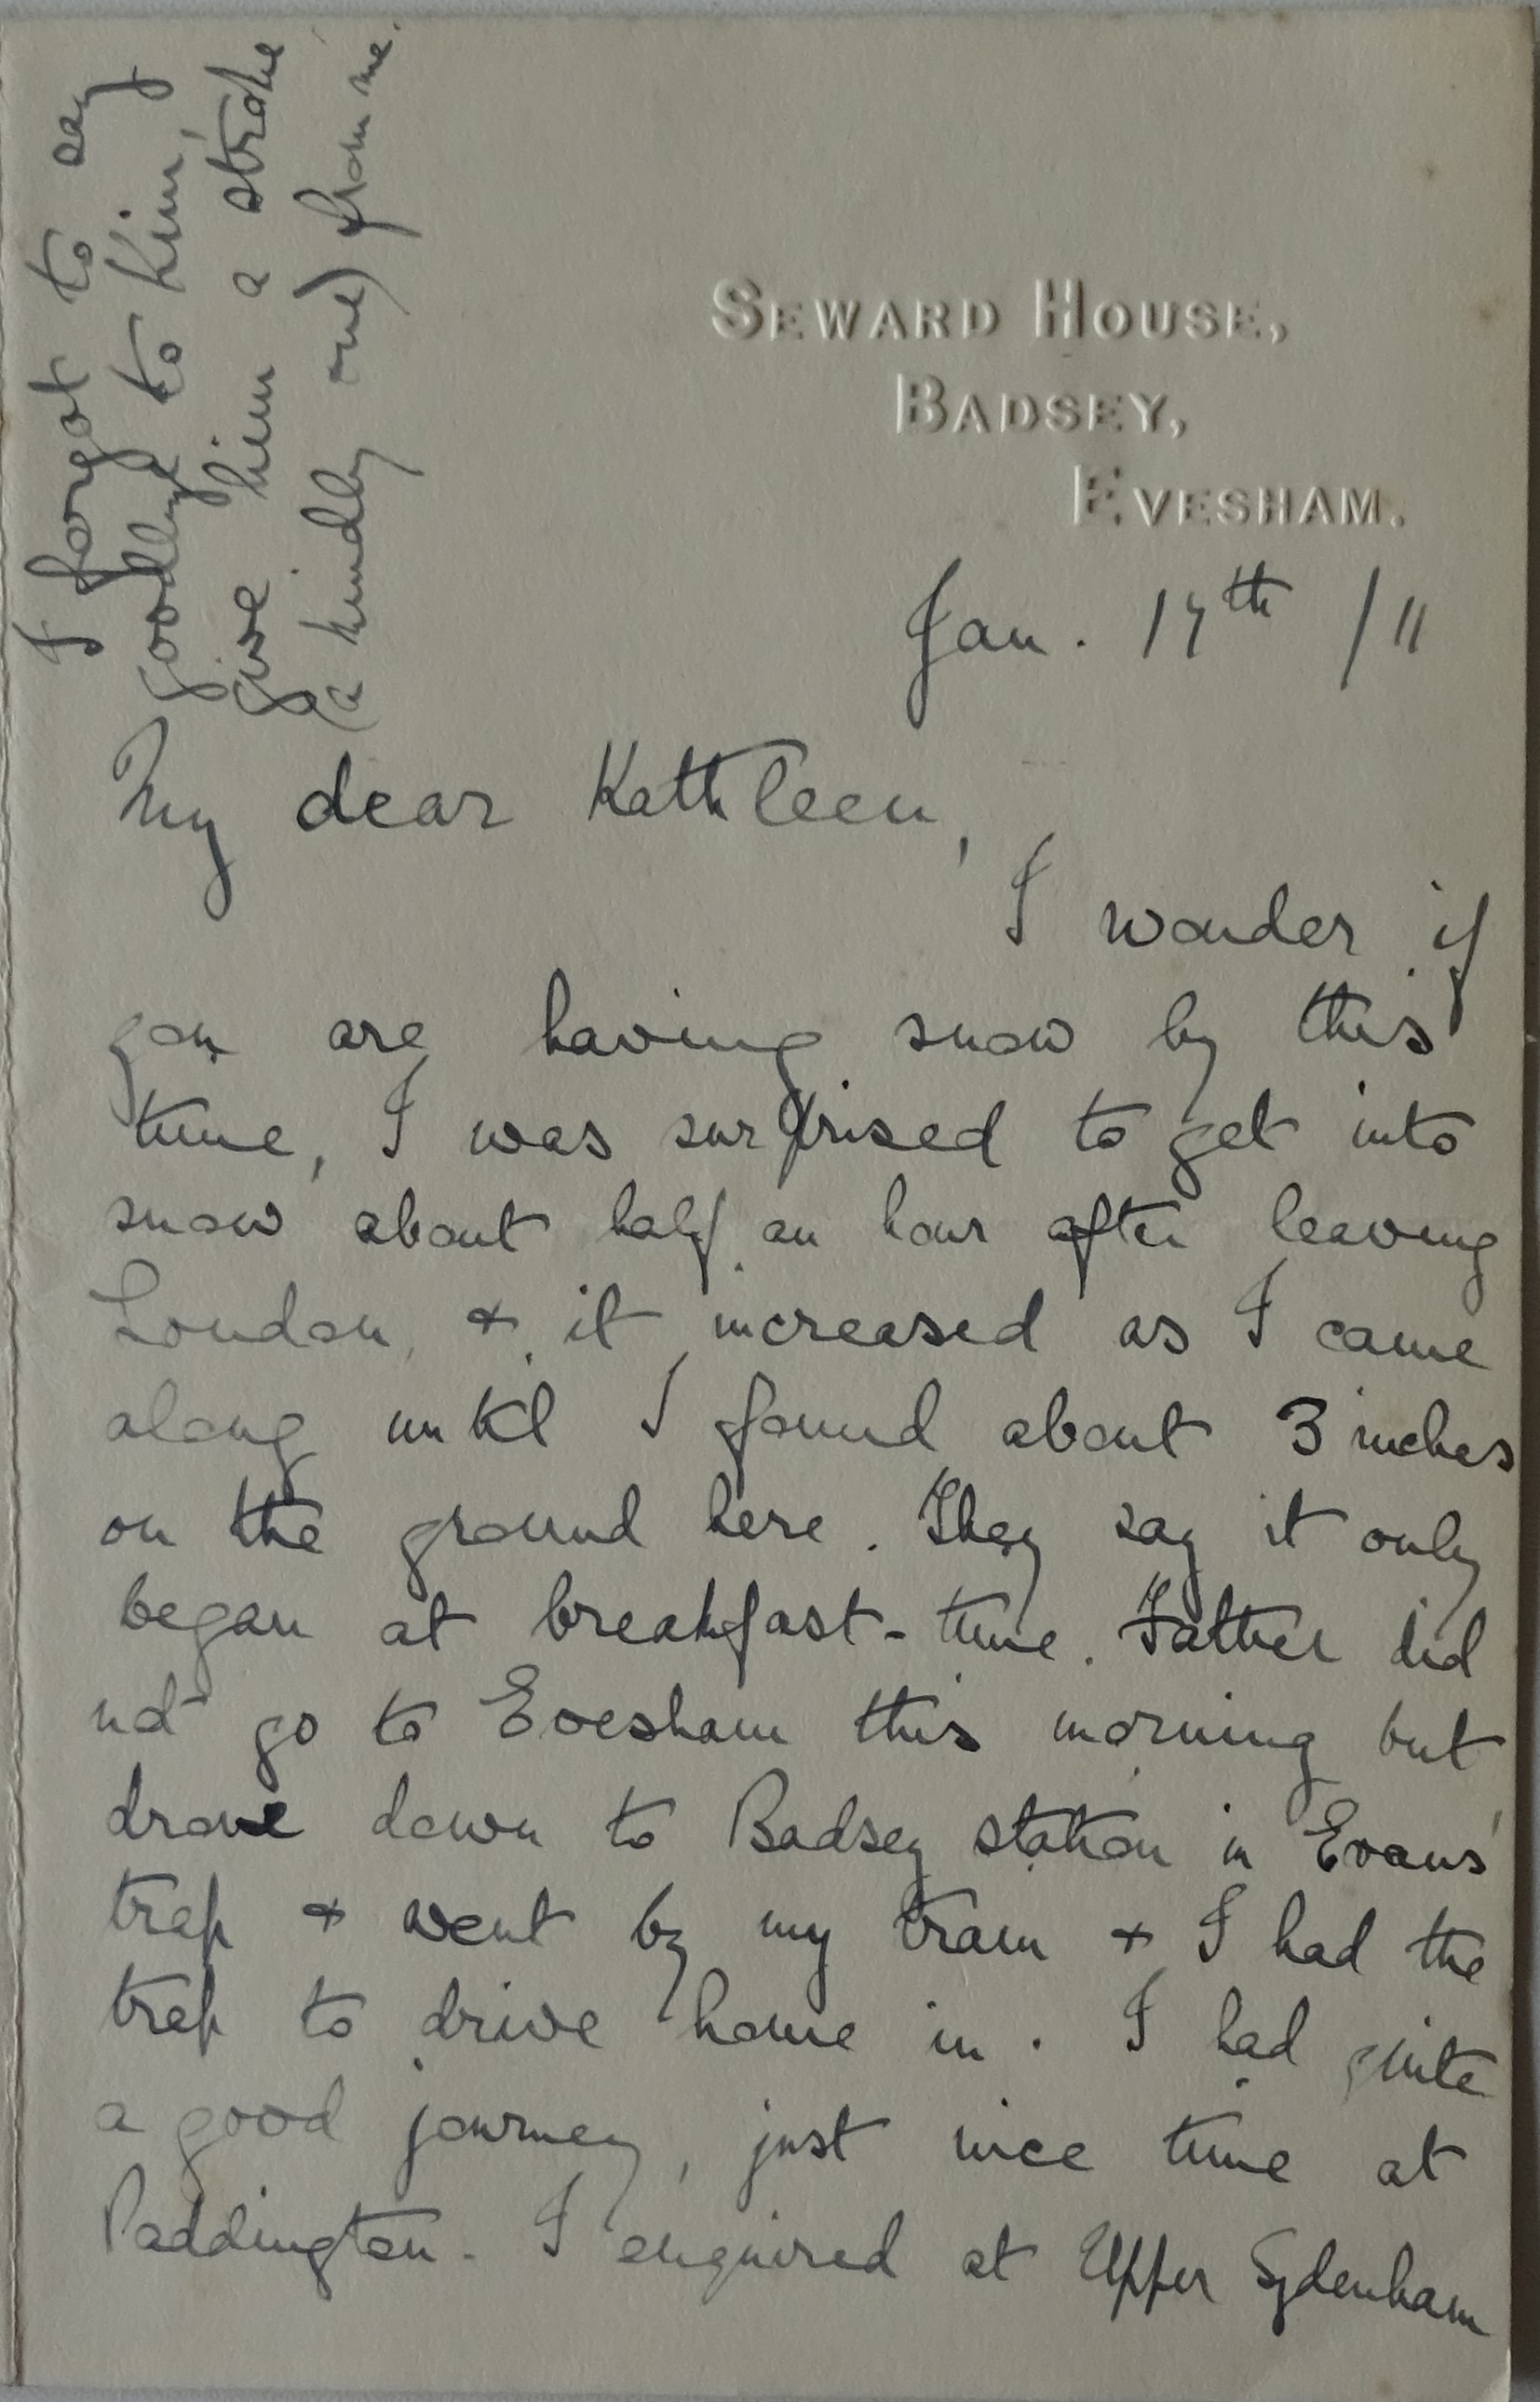 SEWARD HOUSE,
BADSEY,
EVESHAM.
Jan. 17th /11
My dear Kathleen,
I wonder if
you are having snow by this
time, I was surprised to get into
snow about half an hour after leaving
London, & it increased as I came
along until I found about 3 inches
on the ground here. They say it only
began at breakfast-time. Father did
not go to Evesham this morning but
drove down to Badsey station in Evans'
trap & went by my train & I had the
trap to drive home in. I had quite
a good journey, just nice time at
Paddington. I enquired at Upper Sydenham
I forgot to say
goodbye to him,
give him a stroke
(a kindly one) from me.